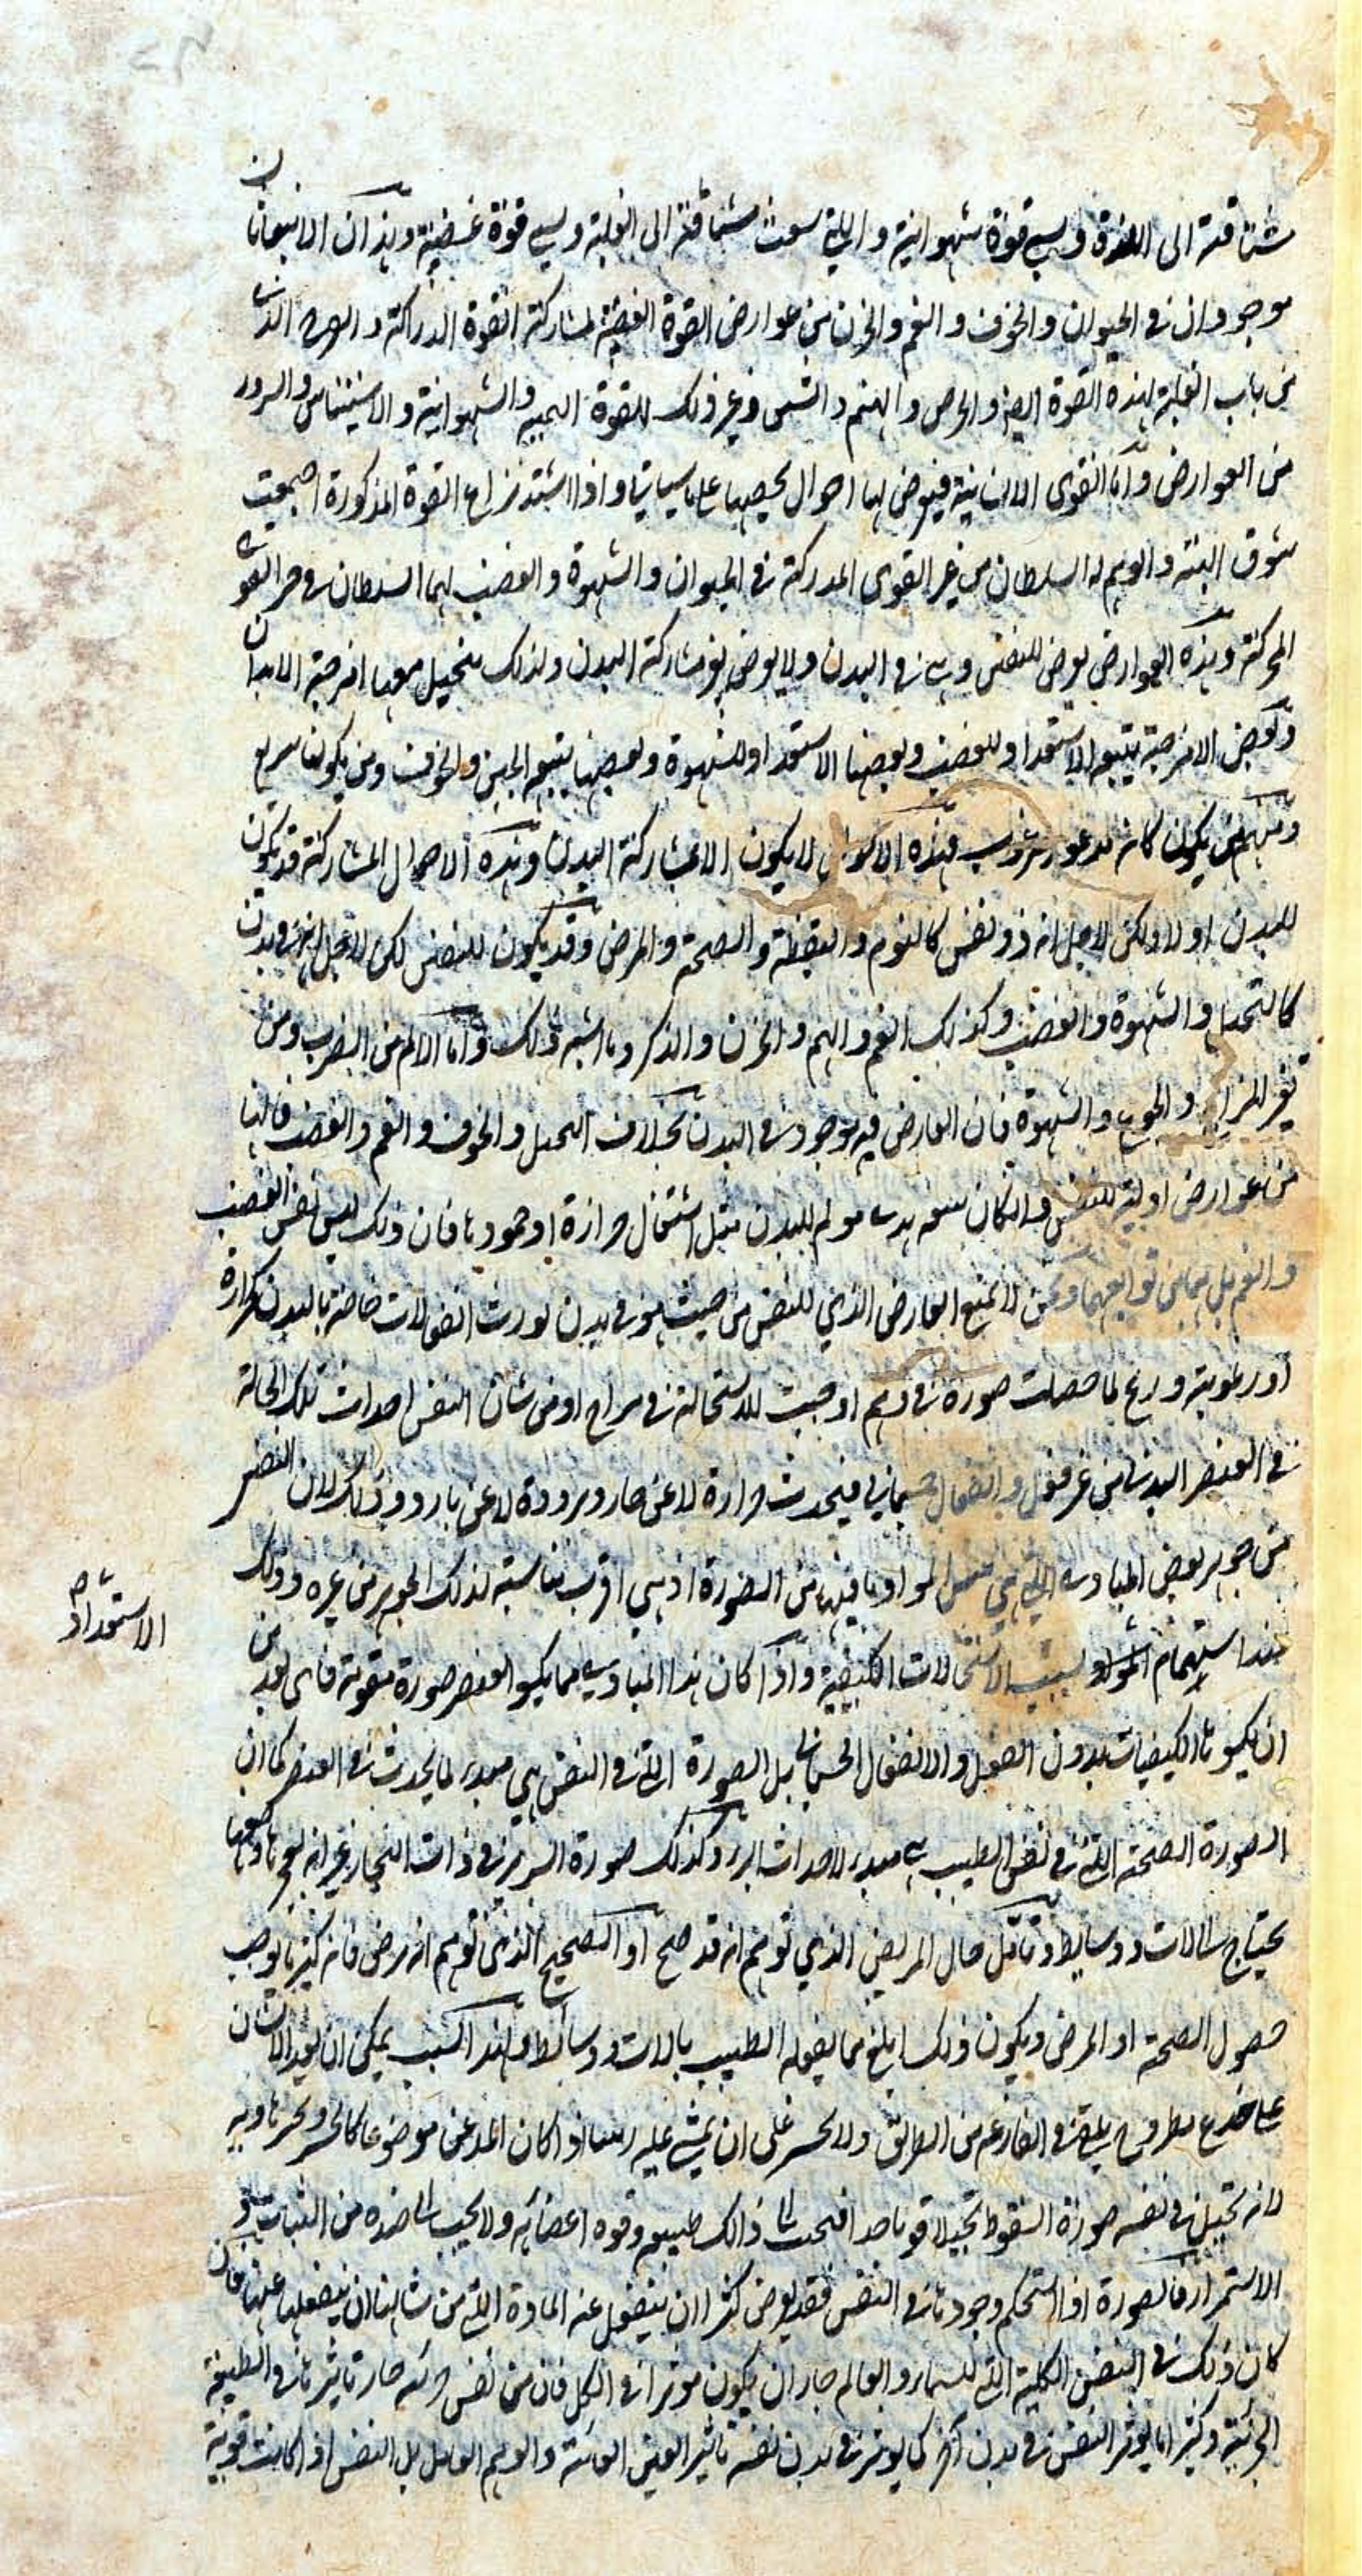 شتاقة الى اللذة وهي قوة شهوانية والتي بعث مشتاقة الى الغلبة وهي قوة غضبية وهذان الانبعاثان
موجودان في الحيوان والخوف والغم والحزن من عوارض القوة الغضبية لمشاركة القوة الدراكة
من باب الغلبة لهذه القوة ايضا والحرص والنهم والشبق وغير ذلك للقوة البهيمية والشهوانية والاستيناس والسرور
من العوارض واما القوى الانسانية فيعرض لها احوال يخصها على ما سياتي واذا اشتد نزاع القوة المذكورة اجمعت
شوق البتة والوهم له السلطان من غير القوى المدركة في الحيوان والشهوة والغضب لهما السلطان في حيز القوى
المحركة وهذه العوارض يعرض للنفس وهي في البدن ولا يعرض بغير مشاركة البدن ولذلك يتخيل معها امزجة الابدان
وبعض الامزجة يتبعه الاستعداد للغضب وبعضها الاستعداد للشهوة وبعضها يتبعه الجبن والخوف ومن يكون سريع
ومنهم من يكون كانه مذعور مرعوب فهذه الاحوال لا يكون الا بمشاركة البدن وهذه الاحوال المشاركة قد يكون
للبدن اولا ولكن لاجل انه ذو نفس كالنوم واليقظة والصحة والمرض وقد يكون للنفس لكن لاجل انه في بدن
كالتخيل والشهوة والغضب وكذلك الغم والهم والحزن والذكر وما اشبه ذلك واما الالم من الضرب ومن
تغير المزاج والجوع والشهوة فان العارض فيه موجود في البدن بخلاف التخيل والخوف والغم والغضب فانها
من عوارض اولية للنفس وان كان يتبعه مولم للبدن مثل اشتعال حرارة او خمودها فان ذلك ليس نفس الغضب
والغم بل هما من توابعهما ونحن لا نمنع العارض الذي للنفس من حيث هو في بدن يورث انفعالات خاصة بالبدن كحرارة
او رطوبة وريح لما حصلت صورة في وهم اوجبت للاستحالة في مزاج او من شان النفس احداث تلك الحالة
في العنصر البدني من غير فعل وانفعال جسماني فيحدث حرارة لا عن حار وبرودة لا عن بارد وذلك لان النفس
من جوهر بعض المبادي التي هي المواد ما فيها من الصورة اذ هي اقرب مناسبة لذلك الجوهر من غيره وذلك
عند استتمام المواد بسبب الاستحالات الكيفية واذا كان هذا المبادي مما يكسو العنصر صورة مقومة فاي بعد من
الاستعداد صح
ان يكسوها الكيفيات بدون الفعل والانفعال الجسماني بل الصورة التي في النفس هي مبدء لما يحدث في العنصر كما ان
الصورة الصحة التي في نفس الطبيب هي مبدء لاحداث البرء وكذلك صورة السرير في ذات النجار غير انه
يحتاج الى الات ووسايط وتامل حال المريض الذي توهم انه قد صح او الصحيح الذي توهم انه مرض فانه كثيرا ما يوجب
حصول الصحة او المرض ويكون ذلك ابلغ مما يفعله الطبيب بالات ووسائط ولهذا السبب يمكن ان يعدو الانسان
على جذع مطروح يلقى في القارعة من الطرائق ولا يجسر على ان يمشي عليه اذا كان المدعن موضوعا كالجسر وتحته هاوية
لانه تخيل في نفسه صورة السقوط تخيلا قويا جدا فيجيب الى ذلك طبيعته وقوة اعضائه ولا يجيب الى ضده من الثبات
والاستمرار فالصورة اذا استحكم وجودها في النفس فقد يعرض كثيرا ان ينفعل عنه المادة التي من شانها ان ينفعل عنها فان
كان ذلك في النفس الكلية التي للسماء والعالم جاز ان يكون موثرا في الكل فان من نفس جزئية جاز تاثيرها في الطبيعة
الجزئية وكثيرا ما يوثر النفس في بدن اخر كما يوثر في بدن نفسه تاثير العين العاينة والوهم العامل بل النفس اذا كانت قوية